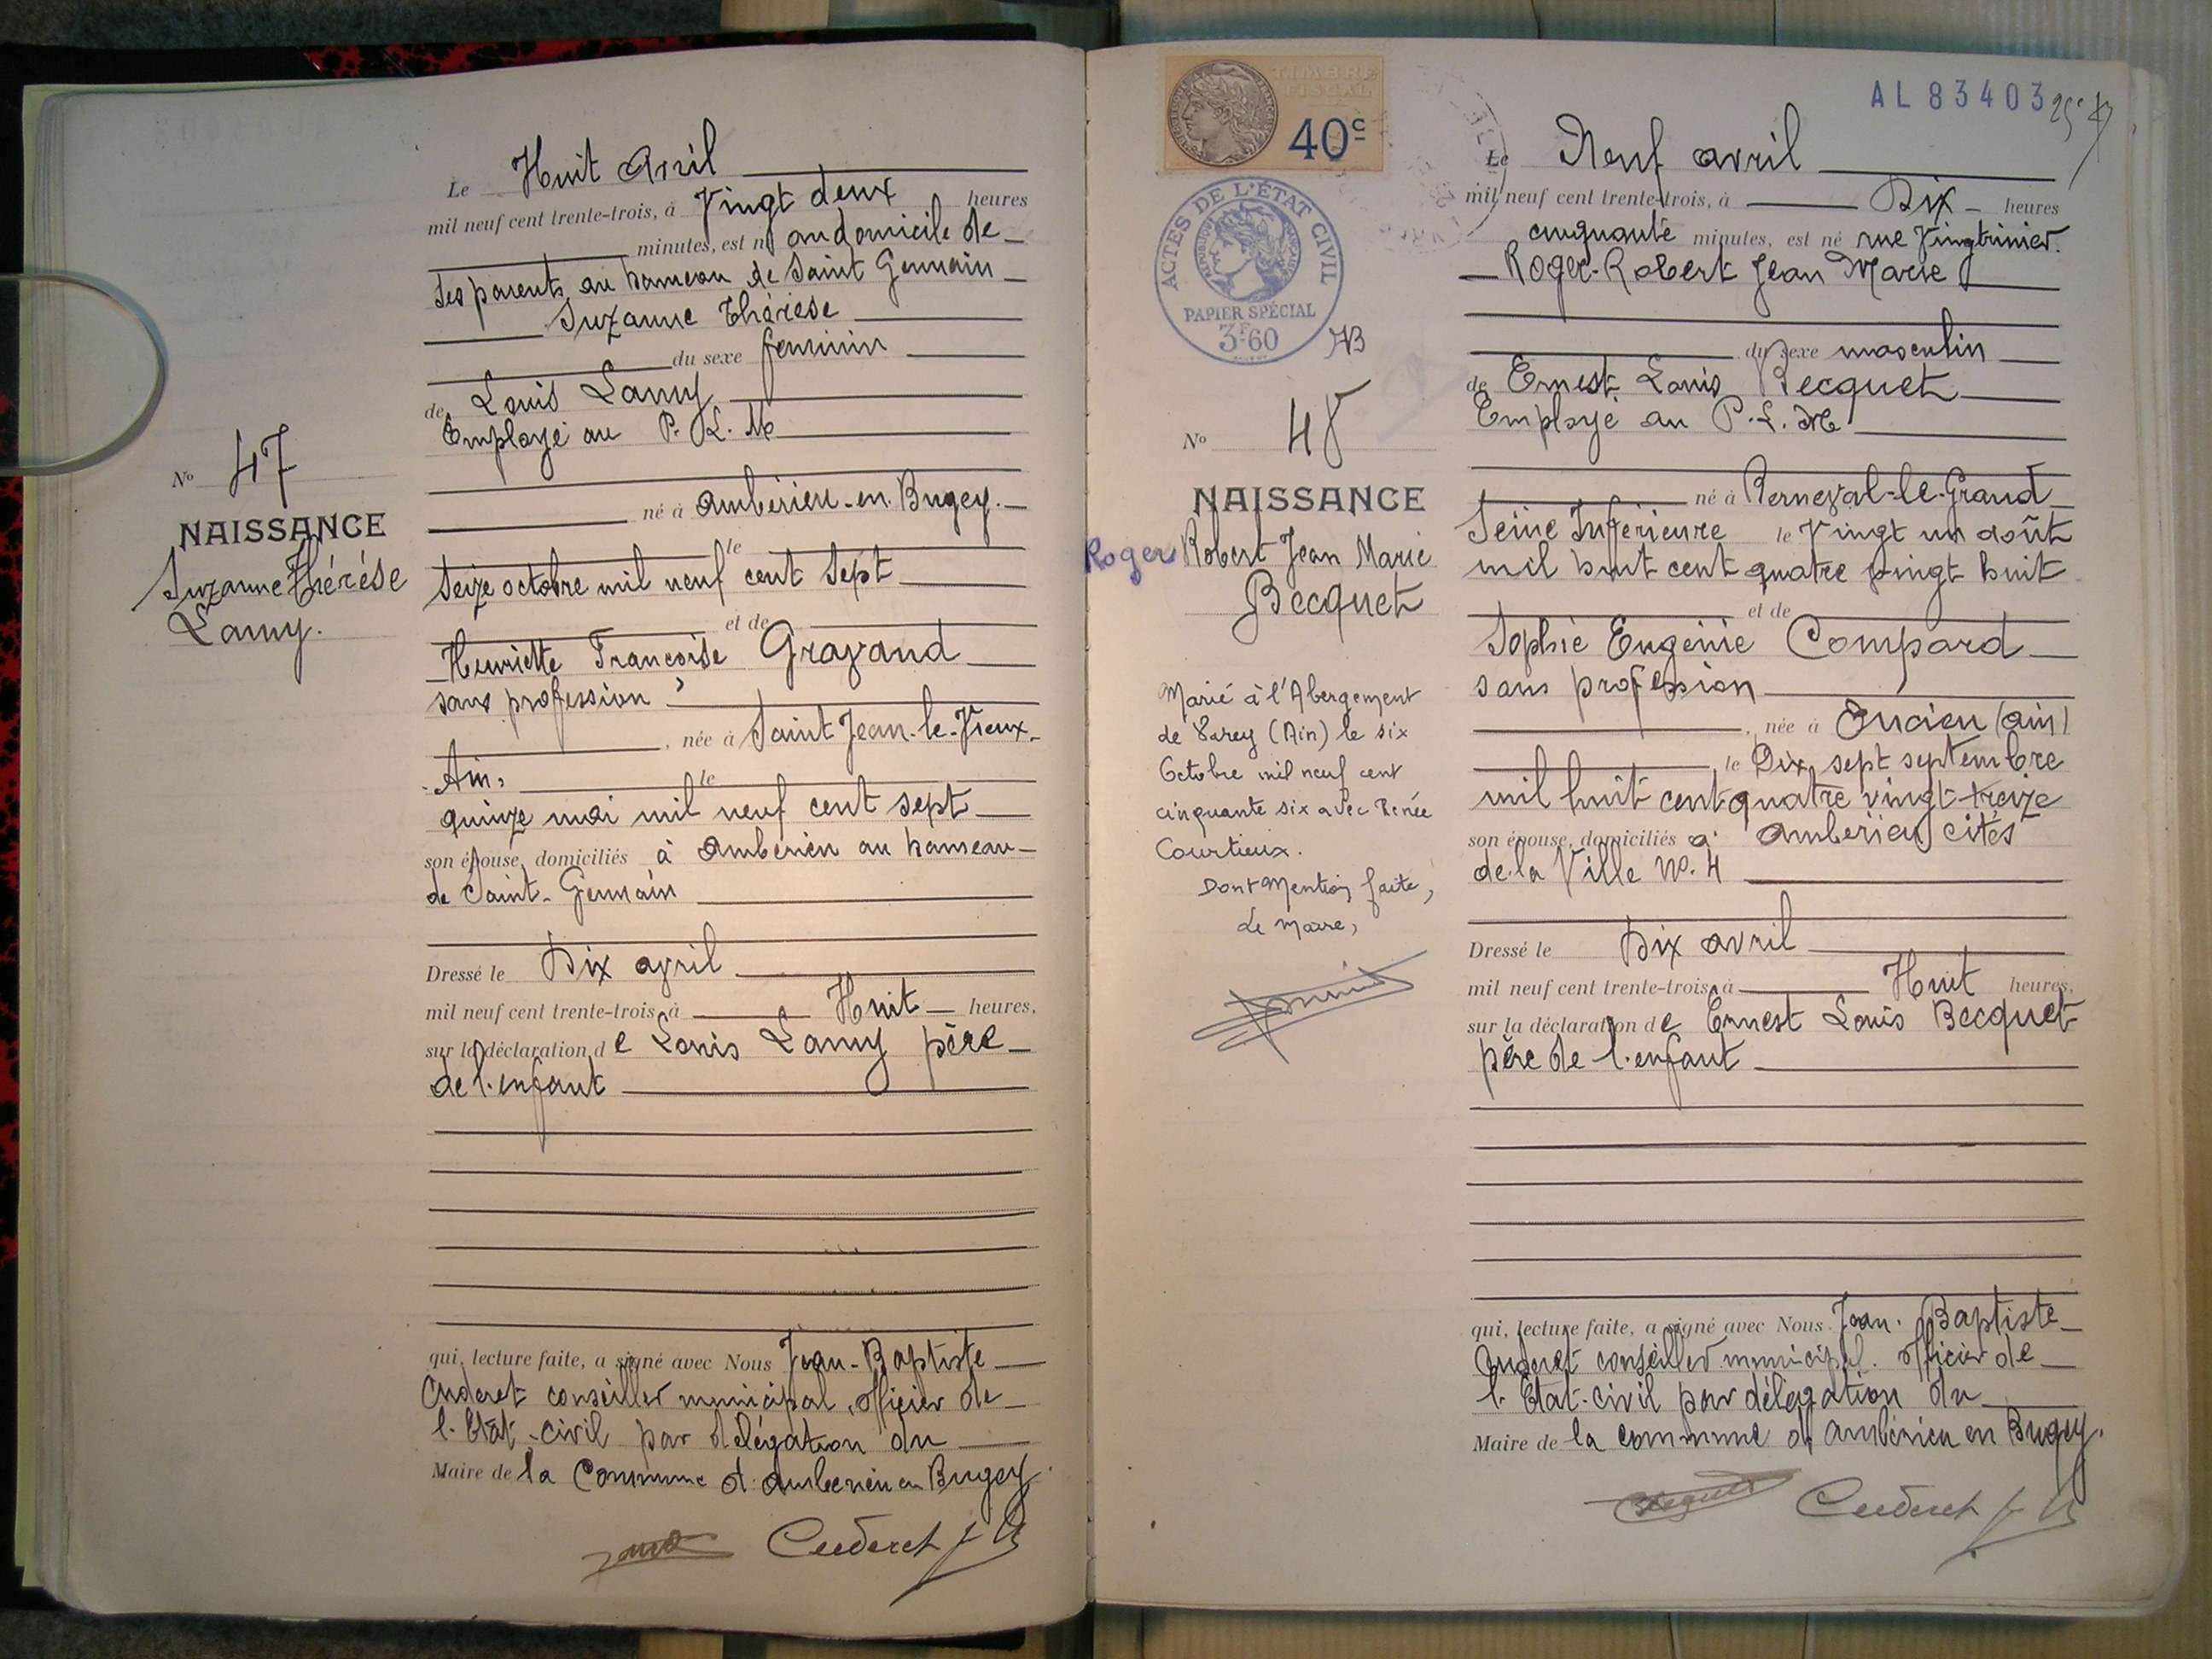 Le Huit Avril
mil neuf cent trente-trois, à Vingt deux heures
minutes, est né au domicile de
ses parents au hameau de Saint Germain
Suzanne Thérèse
du sexe feminin
de Louis Lamy
Employé au P. L. M
né à Ambérieu-en-Bugey.
le
seize octobre mil neuf cent sept
et de
Henriette Francoise Gravand
sans profession
, née à Saint Jean-le-Vieux
Ain,
le
quinze mai mil neuf cent sept
son épouse, domiciliés à Ambérieu au hameau
de Saint-Germain
Dressé le Dix avril
mil neuf cent trente-trois, à Huit heures,
sur la déclaration de Louis Lamy père
de l'enfant
qui, lecture faite, a signé avec Nous Jean-Baptiste
Cuderet conseiller municipal, officier de
l'Etat-civil par délégation du
Maire de la Commune d'Ambérieu en Bugey.
Cuderet J B
No 47
NAISSANCE
Suzanne Thérèse
Lamy.
TIMBRE
FISCAL
40c
ACTES DE L'ÉTAT CIVIL
PAPIER SPÉCIAL
3F60
AL 83403
No 48
NAISSANCE
Roger Robert Jean Marie
Becquet
Marié à l'Abergement
de Varey (Ain) le six
Octobre mil neuf cent
cinquante six avec Renée
Courtieux.
Dont Mention faite,
Le Maire,
Le Neuf avril
mil neuf cent trente-trois, à Dix heures
cinquante minutes, est né rue Vingtrinier.
Roger-Robert Jean Marie
du sexe masculin
de Ernest Louis Becquet
Employé au P.L.M
né à Berneval-le-Grand
Seine Inférieure le Vingt un août
mil huit cent quatre vingt huit
et de
Sophie Eugénie Compard
sans profession
, née à Oncieu (ain)
le Dix sept septembre
mil huit cent quatre vingt treize
son épouse, domiciliés à Ambérieu cités
de la Ville No. 4
Dressé le Dix avril
mil neuf cent trente-trois, à Huit heures,
sur la déclaration de Ernest Louis Becquet
père de l'enfant
qui, lecture faite, a signé avec Nous Jean-Baptiste
Cuderet conseiller municipal. officier de
l'Etat-civil par délégation du
Maire de la commune d'Ambérieu en Bugey.
Becquet Cuderet J B